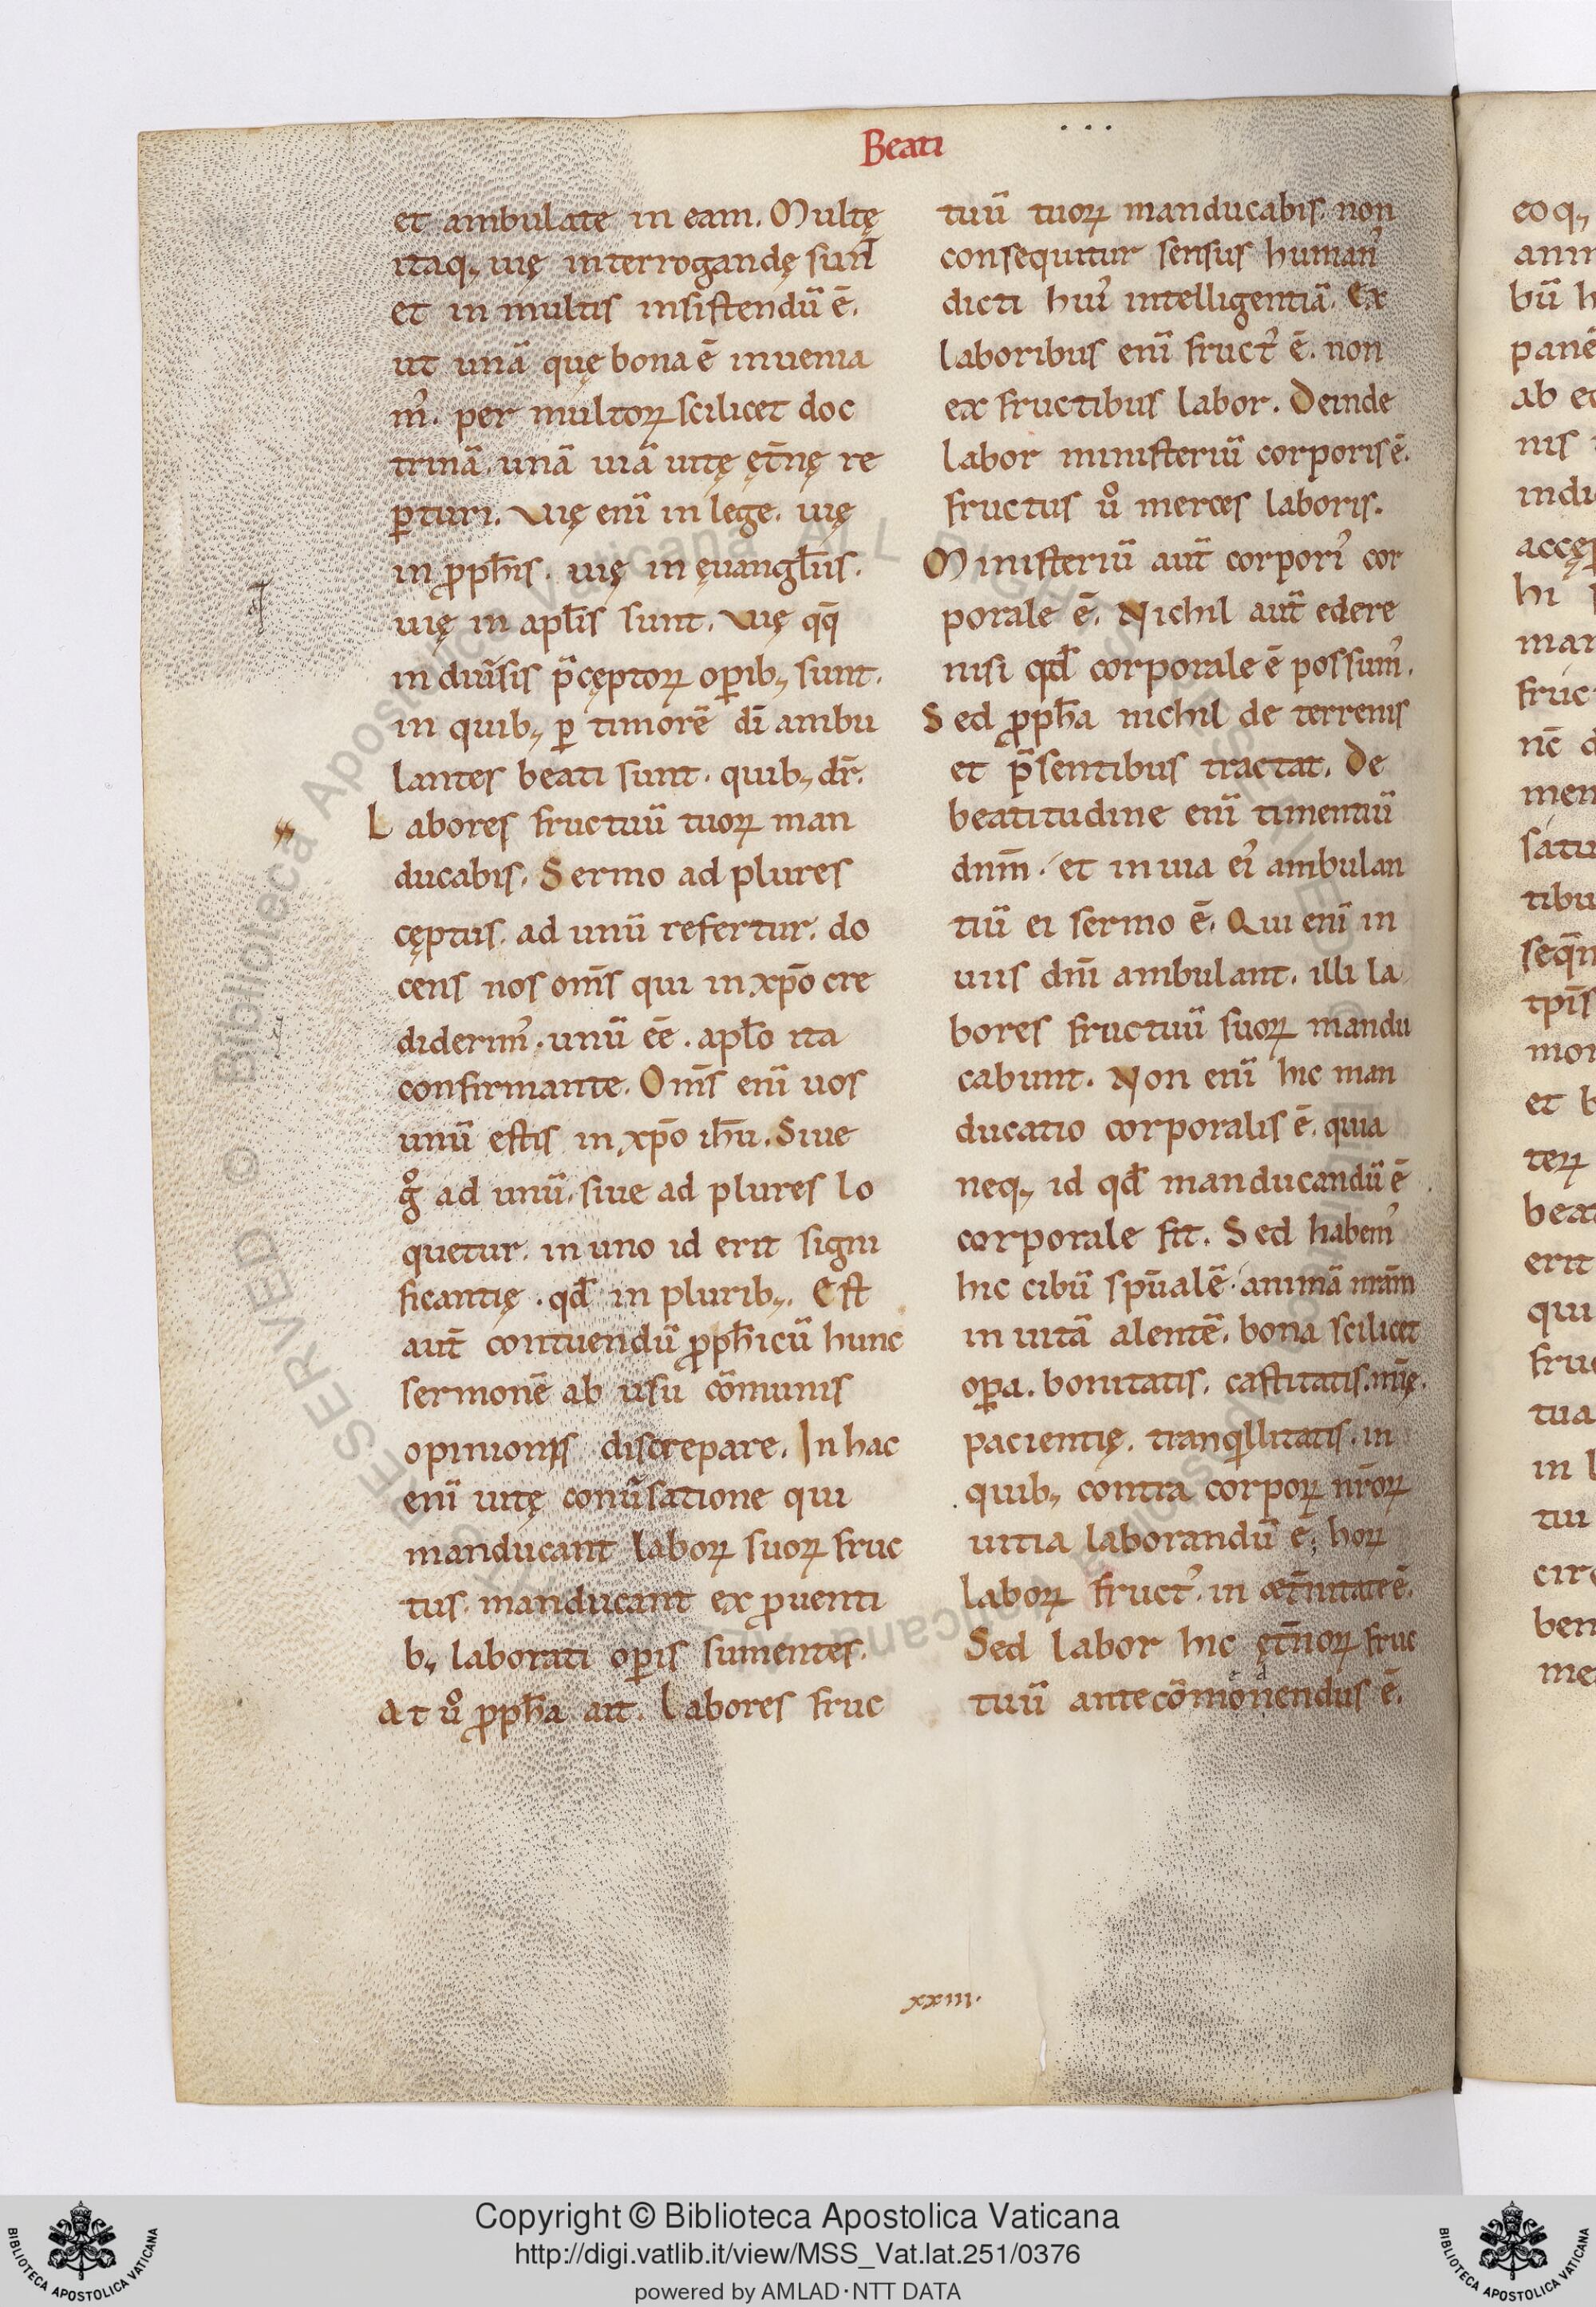 Beati
et ambulate in eam. Multę
itaq; uię interrogandę sunt̄
et in multis insistendū ē.
ut unā quę bona ē inuenia
m᾽. per multoꝝ scilicet doc
trinā. unā uiā uitę ęt̄nę re
ꝑturi. Vię eni̅ in lege. uię
in ꝓph̄is. uię in ęuangl̄iis.
uię in apl̄is sunt. Vię qq̄
in diuīsis p̄cęptoꝝ oꝑib; sunt.
in quib; ꝑ timorē dī ambu
lantes beati sunt. quib; dr̄.
Labores fructuū tuoꝝ man
ducabis. Sermo ad plures
cęptus. ad unū refertur. do
cens nos om̄s qui in xp̄o cre
diderim᾽. unū ēe. apl̄o ita
confirmante. Om̄s eni̅ uos
unū estis in xp̄o ih̄u. Siue
gͦ ad unū. siue ad plures lo
quetur. in uno id erit signi
ficantię. qd̄ in plurib;. Est
aut̄ contuendū ꝓph̄icū hunc
sermonē ab usu cōmunis
opinionis discrepare. In hac
eni̅ uitę conūsatione qui
manducant laboꝝ suoꝝ fruc
tus. manducant ex ꝓuenti
b; laborati oꝑis sumentes.
At uͦ ꝓph̄a ait. Labores fruc
tuū tuoꝝ manducabis. non
consequitur sensus human᾽
dicti hui᾽ intelligentiā. Ex
laboribus eni̅ fruct᾽ ē. non
ex fructibus labor. Deinde
labor ministeriū corporis ē.
fructus uͦ merces laboris.
Ministeriū aut̄ corpori᾽ cor
porale ē. Nichil aut̄ edere
nisi qd̄ corporale ē possum᾽.
Sed ꝓph̄a nichil de terrenis
et p̄sentibus tractat. De
beatitudine eni̅ timentiū
dnm̄. et in uia ei᾽ ambulan
tiū ei sermo ē. Qui eni̅ in
uiis dnī ambulant. illi la
bores fructuū suoꝝ mandu
cabunt. Non eni̅ hic man
ducatio corporalis ē. quia
neq; id qd̄ manducandū ē
corporale fit. Sed habem᾽
hic cibū spūalē. animā nr̄am
in uitā alentē. bona scilicet
oꝑa. bonitatis. castitatis. mi̅ę.
pacientię. tranqͥllitatis. in
quib; contra corpoꝝ nr̄oꝝ
uitia laborandū ē; hoꝝ
laboꝝ fruct᾽. in æt̄nitate ē.
Sed labor hic ęt̄noꝝ fruc
tuū ante cōmonendus ē.
xxiii.
eoq;
bū h
panē
ab eo
nis
indu
hi
fruc
nc̄ d
tibu
tp̄is
et b
teꝝ
beat
erit
qui
fruc
tua
in l
tui
Copyright © Biblioteca Apostolica Vaticana
http://digi.vatlib.it/view/MSS_Vat.lat.251/0376
powered by AMLAD·NTT DATA
BIBLIOTECA APOSTOLICA VATICANA
BIBLIOTECA APOSTOLICA VATICANA